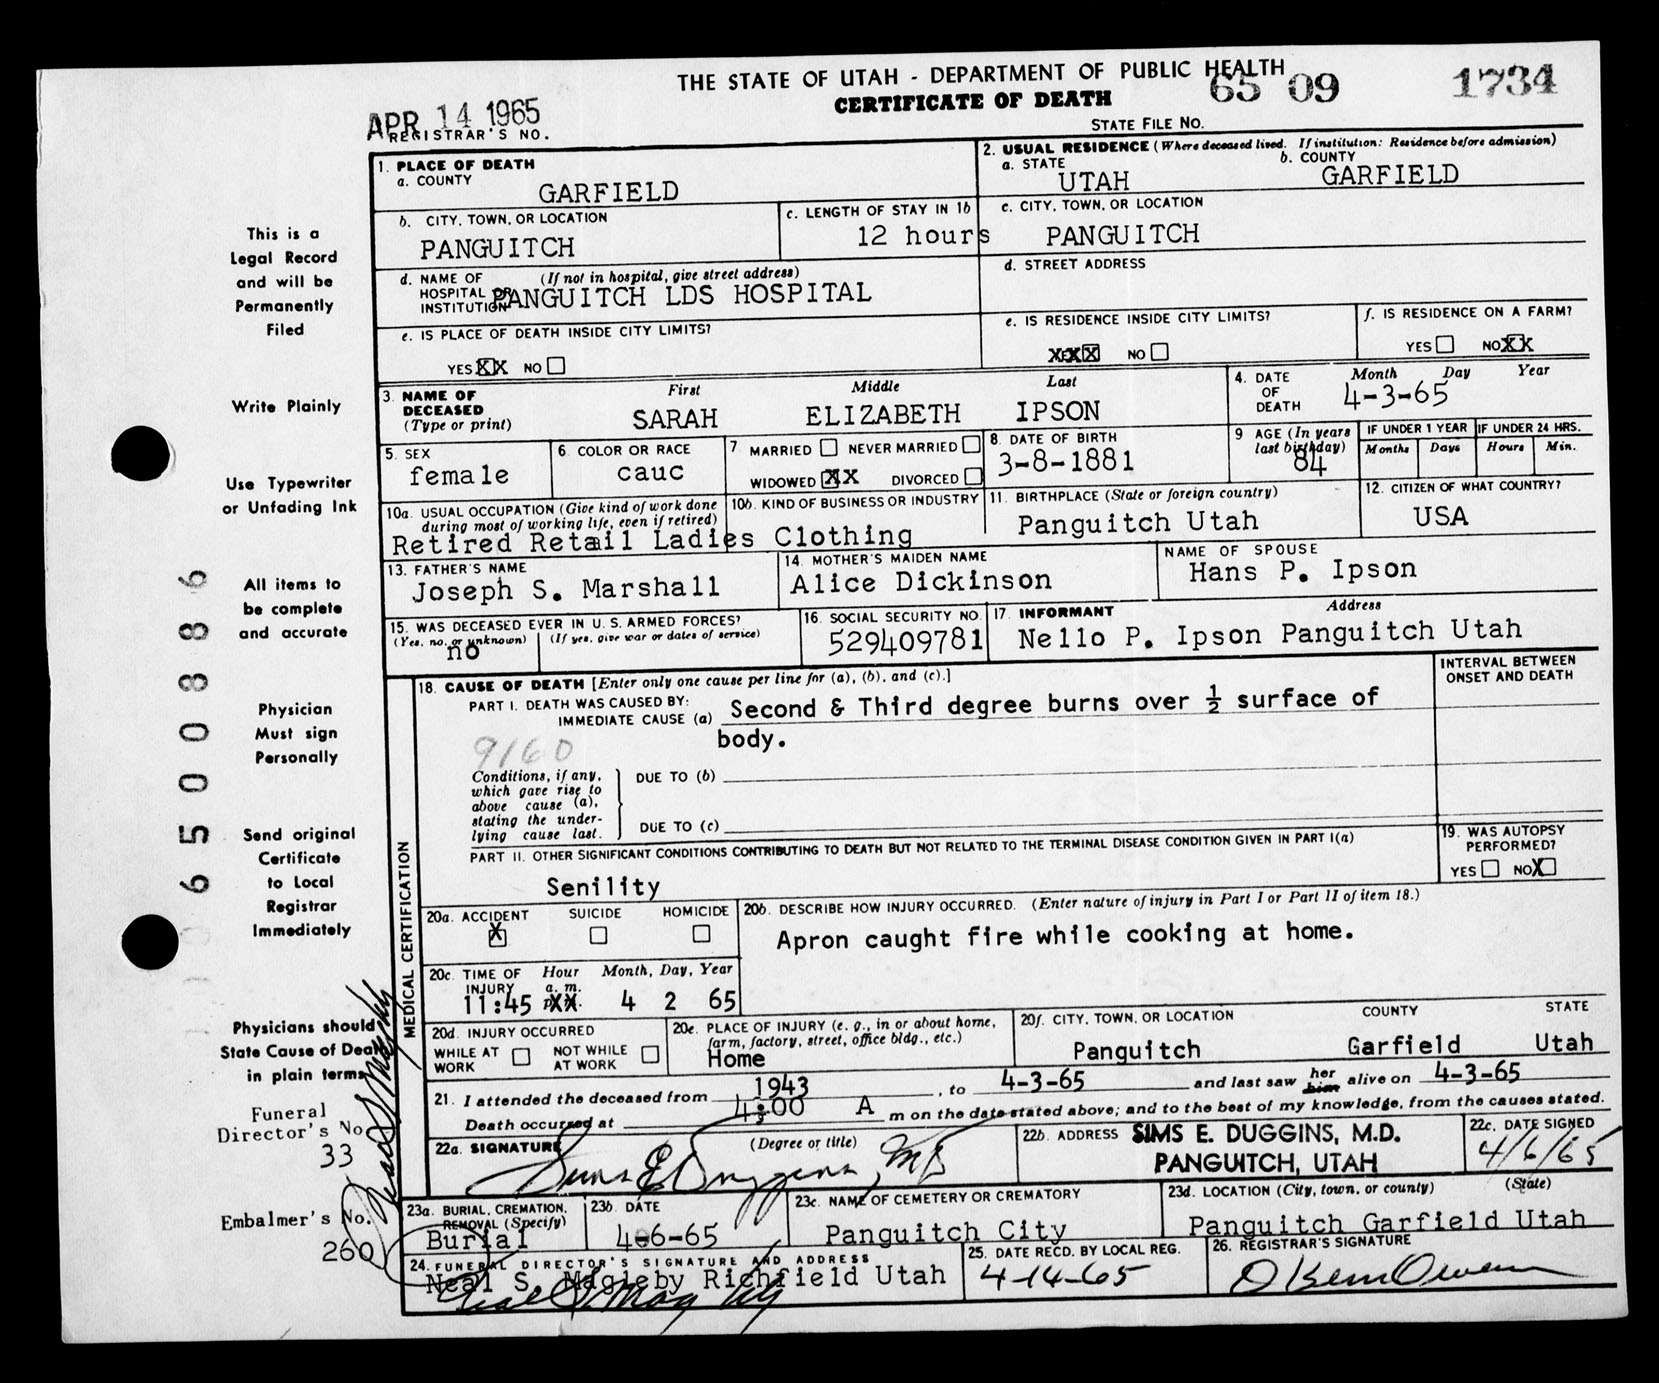 THE STATE OF UTAH - DEPARTMENT OF PUBLIC HEALTH
CERTIFICATE OF DEATH
65 09 1734
STATE FILE NO.
APR 14 1965
REGISTRAR'S NO.
1. PLACE OF DEATH
a. COUNTY
GARFIELD
2. USUAL RESIDENCE (Where deceased lived. If institution: Residence before admission)
a. STATE
UTAH
b. COUNTY
GARFIELD
b. CITY, TOWN, OR LOCATION
PANGUITCH
c. LENGTH OF STAY IN 1b
12 hours
c. CITY, TOWN, OR LOCATION
PANGUITCH
d. NAME OF HOSPITAL OR INSTITUTION (If not in hospital, give street address)
PANGUITCH LDS HOSPITAL
d. STREET ADDRESS
e. IS PLACE OF DEATH INSIDE CITY LIMITS?
YES XX NO
e. IS RESIDENCE INSIDE CITY LIMITS?
XXX NO
f. IS RESIDENCE ON A FARM?
YES NO XX
3. NAME OF DECEASED (Type or print)
First Middle Last
SARAH ELIZABETH IPSON
4. DATE OF DEATH
Month Day Year
4-3-65
5. SEX
female
6. COLOR OR RACE
cauc
7 MARRIED NEVER MARRIED
WIDOWED XX DIVORCED
8. DATE OF BIRTH
3-8-1881
9 AGE (In years last birthday)
84
IF UNDER 1 YEAR
Months Days
IF UNDER 24 HRS.
Hours Min.
10a. USUAL OCCUPATION (Give kind of work done during most of working life, even if retired)
10b. KIND OF BUSINESS OR INDUSTRY
Retired Retail Ladies Clothing
11. BIRTHPLACE (State or foreign country)
Panguitch Utah
12. CITIZEN OF WHAT COUNTRY?
USA
13. FATHER'S NAME
Joseph S. Marshall
14. MOTHER'S MAIDEN NAME
Alice Dickinson
NAME OF SPOUSE
Hans P. Ipson
15. WAS DECEASED EVER IN U.S. ARMED FORCES?
(Yes, no, or unknown) (If yes, give war or dates of service)
no
16. SOCIAL SECURITY NO.
529409781
17. INFORMANT Address
Nello P. Ipson Panguitch Utah
MEDICAL CERTIFICATION
18. CAUSE OF DEATH [Enter only one cause per line for (a), (b), and (c).]
INTERVAL BETWEEN ONSET AND DEATH
PART I. DEATH WAS CAUSED BY:
IMMEDIATE CAUSE (a) Second & Third degree burns over ½ surface of
body.
9160
Conditions, if any, which gave rise to above cause (a), stating the underlying cause last.
DUE TO (b)
DUE TO (c)
PART II. OTHER SIGNIFICANT CONDITIONS CONTRIBUTING TO DEATH BUT NOT RELATED TO THE TERMINAL DISEASE CONDITION GIVEN IN PART I(a)
Senility
19. WAS AUTOPSY PERFORMED?
YES NO X
20a. ACCIDENT SUICIDE HOMICIDE
X
20b. DESCRIBE HOW INJURY OCCURRED. (Enter nature of injury in Part I or Part II of item 18.)
Apron caught fire while cooking at home.
20c. TIME OF INJURY Hour Month, Day, Year
11:45 a. m. XX 4 2 65
20d. INJURY OCCURRED
WHILE AT WORK NOT WHILE AT WORK
20e. PLACE OF INJURY (e. g., in or about home, farm, factory, street, office bldg., etc.)
Home
20f. CITY, TOWN, OR LOCATION COUNTY STATE
Panguitch Garfield Utah
21. I attended the deceased from 1943, to 4-3-65 and last saw her him alive on 4-3-65
Death occurred at 4:00 A m on the date stated above; and to the best of my knowledge, from the causes stated.
22a. SIGNATURE (Degree or title)
Sims E Duggins, MD
22b. ADDRESS SIMS E. DUGGINS, M.D.
PANGUITCH, UTAH
22c. DATE SIGNED
4/6/65
23a. BURIAL, CREMATION, REMOVAL (Specify)
Burial
23b. DATE
4-6-65
23c. NAME OF CEMETERY OR CREMATORY
Panguitch City
23d. LOCATION (City, town, or county) (State)
Panguitch Garfield Utah
24. FUNERAL DIRECTOR'S SIGNATURE AND ADDRESS
Neal S. Magleby Richfield Utah
Neal S. Magleby
25. DATE RECD. BY LOCAL REG.
4-14-65
26. REGISTRAR'S SIGNATURE
This is a
Legal Record
and will be
Permanently
Filed
Write Plainly
Use Typewriter
or Unfading Ink
All items to
be complete
and accurate
Physician
Must sign
Personally
Send original
Certificate
to Local
Registrar
Immediately
Physicians should
State Cause of Death
in plain terms
Funeral
Director's No.
33
Embalmer's No.
260
Neal S Magleby
6500886